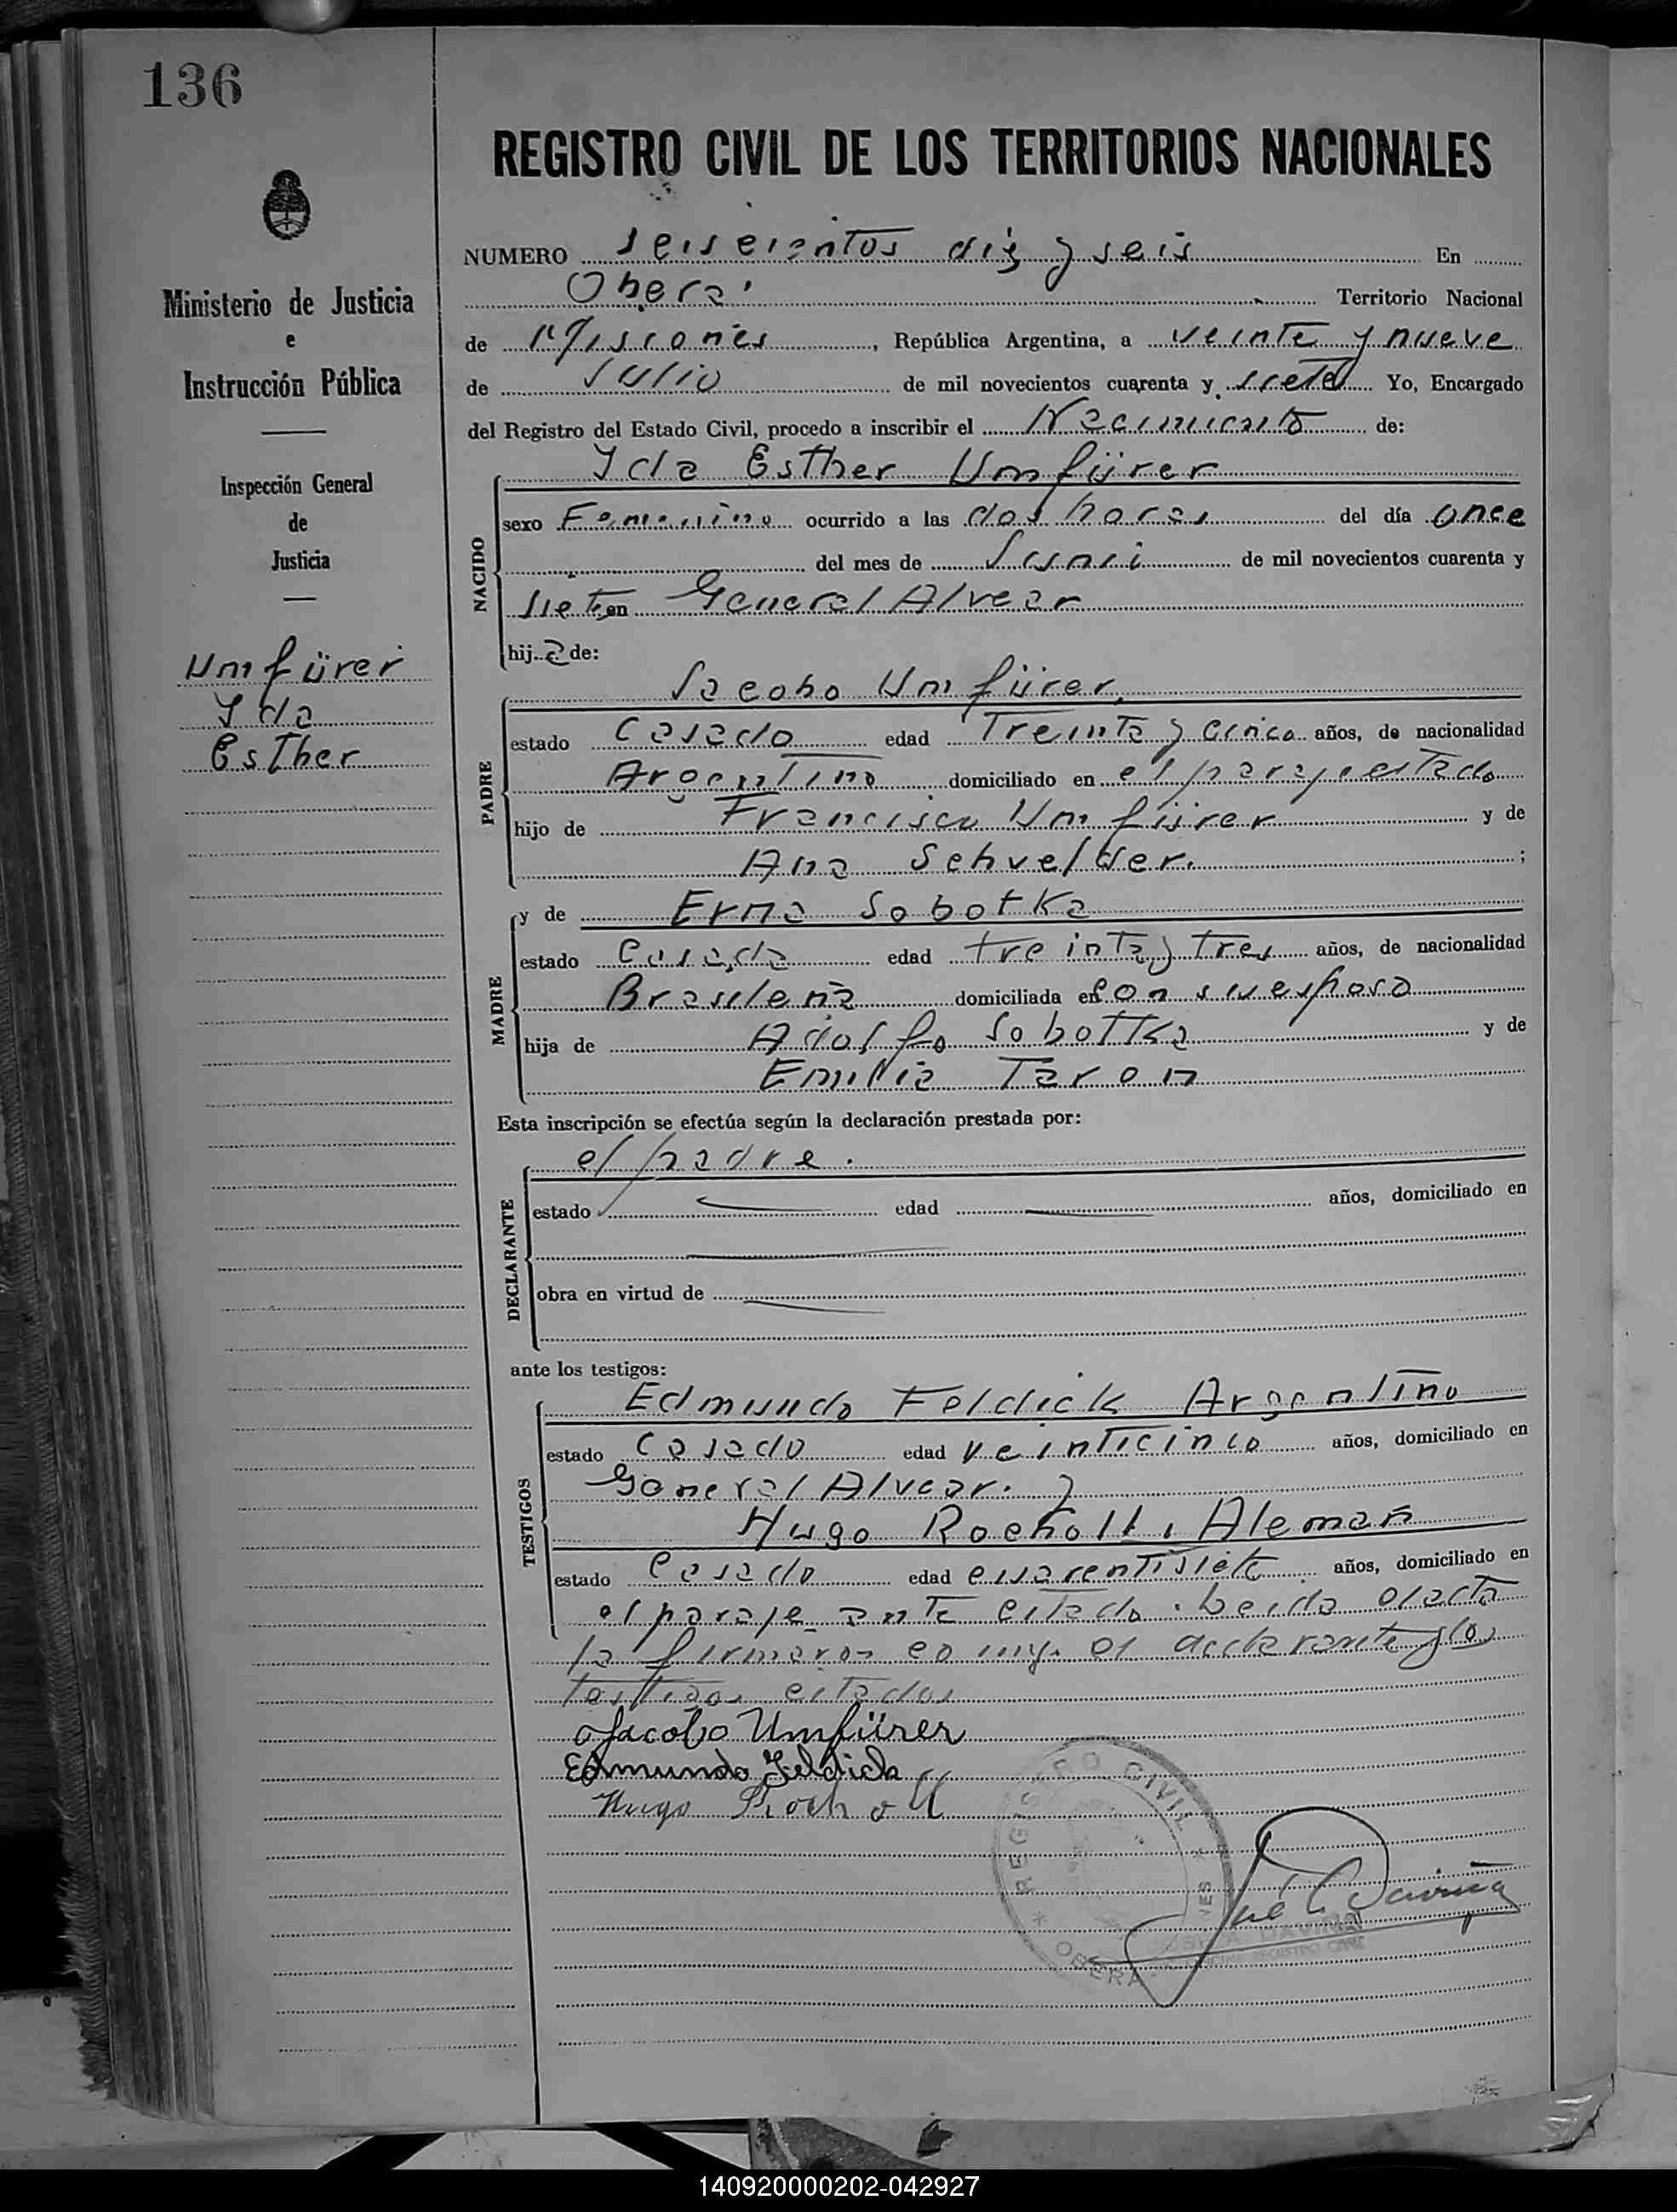 136
REGISTRO CIVIL DE LOS TERRITORIOS NACIONALES
Ministerio de Justicia
e
Instrucción Pública
Inspección General
de
Justicia
Umfürer
Yda
Esther
NUMERO seiscientos diz y seis En
Oberá Territorio Nacional
de Misiones, República Argentina, a veinte y nueve
de Julio de mil novecientos cuarenta y siete Yo, Encargado
del Registro del Estado Civil, procedo a inscribir el Nacimiento de:
Yda Esther Umfürer
NACIDO
sexo Femenino ocurrido a las dos horas del día once
del mes de Junio de mil novecientos cuarenta y
siete en General Alvear
hija de:
PADRE
Jacobo Umfürer
estado Casado edad Treinta y cinco años, de nacionalidad
Argentino domiciliado en el paraje citado
hijo de Francisco Umfürer y de
Ana Schvelder. ;
MADRE
y de Erna Sobotka
estado Casada edad treinta y tres años, de nacionalidad
Brasileña domiciliada en con su esposo
hija de Adolfo Sobottka y de
Emilia Taron
Esta inscripción se efectúa según la declaración prestada por:
DECLARANTE
el padre.
estado edad años, domiciliado en
obra en virtud de
ante los testigos:
TESTIGOS
Edmundo Feldick Argentino
estado Casado edad veinticinco años, domiciliado en
General Alvear. y
Hugo Rocholl, Aleman
estado Casado edad cuarentisiete años, domiciliado en
el paraje ante citado. Leida el acta
la firmaron conmigo el declarante y los
testigos citados
Jacobo Umfürer
Edmundo Feldick
Hugo Rocholl
REGISTRO CIVIL
OBERA
140920000202-042927